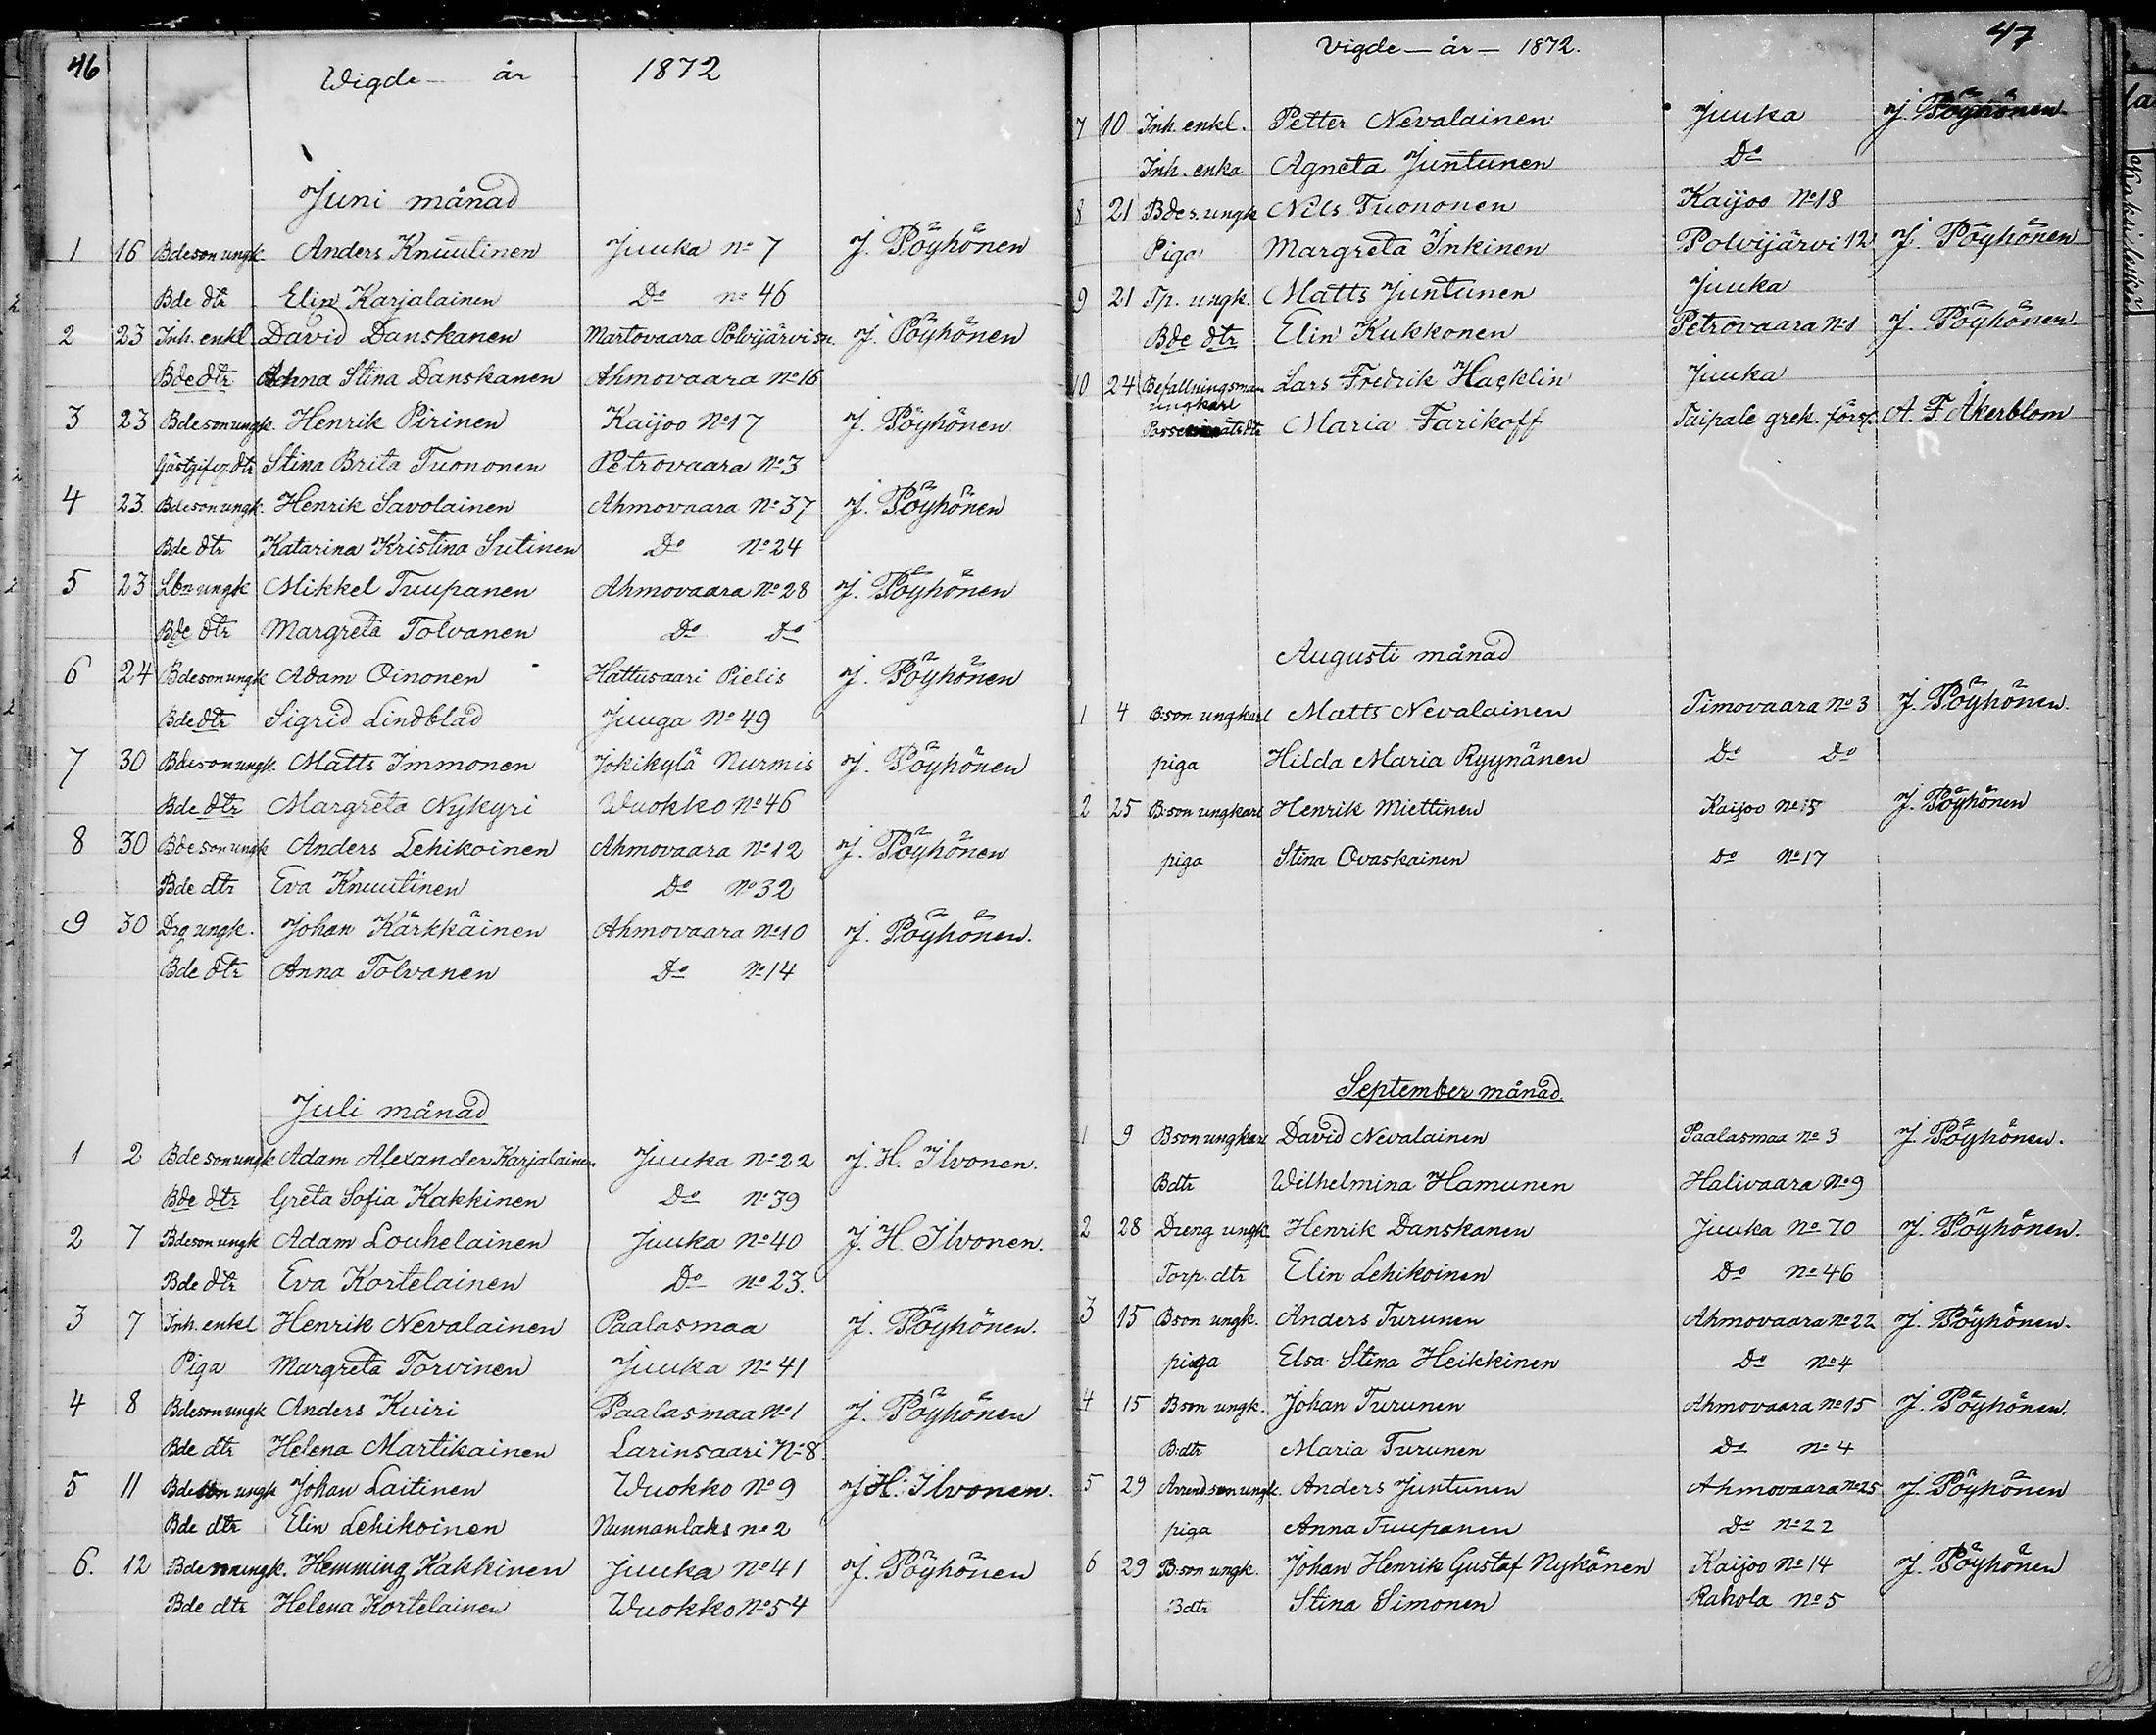 46
Wigde — år 1872
Juni månad
1 16 Bdeson ungk. Anders Knuutinen Juuka No 7 J. Pöyhönen
Bde dtr Elin Karjalainen Do No 46
2 23 Inh. enkl. David Danskanen Martovaara Polvijärvi sn. J. Pöyhönen
Bde dtr Anna Stina Danskanen Ahmovaara No 16
3 23 Bdeson ungk. Henrik Pirinen Kaijoo No 17 J. Pöyhönen
Gästgifv. dtr Stina Brita Tuononen Petrovaara No 3
4 23. Bdeson ungk. Henrik Savolainen Ahmovaara No 37 J. Pöyhönen
Bde dtr Katarina Kristina Sutinen Do No 24
5 23 Lbn ungk Mikkel Tuupanen Ahmovaara No 28 J. Pöyhönen
Bde dtr Margreta Tolvanen Do Do
6 24 Bdeson ungk Adam Oinonen Hattusaari Pielis J. Pöyhönen
Bde dtr Sigrid Lindblad Juuga No 49
7 30 Bdeson ungk. Matts Immonen Jokikylä Nurmis J. Pöyhönen
Bde dtr Margreta Nykyri Wuokko No 46
8 30 Bdeson ungk Anders Lehikoinen Ahmovaara No 12 J. Pöyhönen
Bde dtr Eva Knuutinen Do No 32
9 30 Drg ungk. Johan Kärkkäinen Ahmovaara No 10 J. Pöyhönen.
Bde dtr Anna Tolvanen Do No 14
Juli månad
1 2 Bde son ungk Adam Alexander Karjalainen Juuka No 22 J. H. Ilvonen.
Bde dtr Greta Sofia Kakkinen Do No 39
2 7 Bdeson ungk Adam Louhelainen Juuka No 40 J. H. Ilvonen.
Bde dtr Eva Kortelainen Do No 23.
3 7 Inh. enkl Henrik Nevalainen Paalasmaa J. Pöyhönen.
Piga Margreta Torvinen Juuka No 41
4 8 Bdeson ungk Anders Kuiri Paalasmaa No 1 J. Pöyhönen
Bde dtr Helena Martikainen Larinsaari No 8.
5 11 Bdeson ungk Johan Laitinen Wuokko No 9 J. H. Ilvonen.
Bde dtr Elin Lehikoinen Nunnanlaks No 2
6. 12 Bde ungk. Hemming Kakkinen Juuka No 41 J. Pöyhönen
Bde dtr Helena Kortelainen Wuokko No 54
47
Vigde — år — 1872.
7 10 Inh. enkl. Petter Nevalainen Juuka J. Pöyhönen
Inh. enka Agneta Juntunen Do
8 21 Bde s. ungk Nils Tuononen Kaijoo No 18
Piga Margreta Inkinen Polvijärvi 12 J. Pöyhönen
9 21 Tp. ungk. Matts Juntunen Juuka
Bde dtr Elin Kukkonen Petrovaara No 1 J. Pöyhönen.
10 24 Befallningsman Lars Fredrik Hacklin Juuka
ungkarl
Maria Farikoff Taipale grek. förs. A. F. Åkerblom
Augusti månad
1 4 B:son ungkarl Matts Nevalainen Timovaara No 3 J. Pöyhönen.
piga Hilda Maria Ryynänen Do Do
2 25 B:son ungkarl Henrik Miettinen Kaijoo No 15 J. Pöyhönen
piga Stina Ovaskainen Do No 17
September månad.
1 9 Bson ungkarl David Nevalainen Paalasmaa No 3 J. Pöyhönen.
Bdtr Wilhelmina Hamunen Halivaara No 9
2 28 Dreng ungk. Henrik Danskanen Juuka No 70 J. Pöyhönen.
Torp. dtr Elin Lehikoinen Do No 46
3 15 Bson ungk. Anders Turunen Ahmovaara No 22 J. Pöyhönen.
piga Elsa Stina Heikkinen Do No 4
4 15 Bson ungk. Johan Turunen Ahmovaara No 15 J. Pöyhönen.
B:dtr Maria Turunen Do No 4
5 29 Arrend son ungk. Anders Juntunen Ahmovaara No 25 J. Pöyhönen
piga Anna Tuupanen Do No 22
6 29 B:son ungk. Johan Henrik Gustaf Nykänen Kaijoo No 14 J. Pöyhönen
Bdtr Stina Simonen Rahola No 5